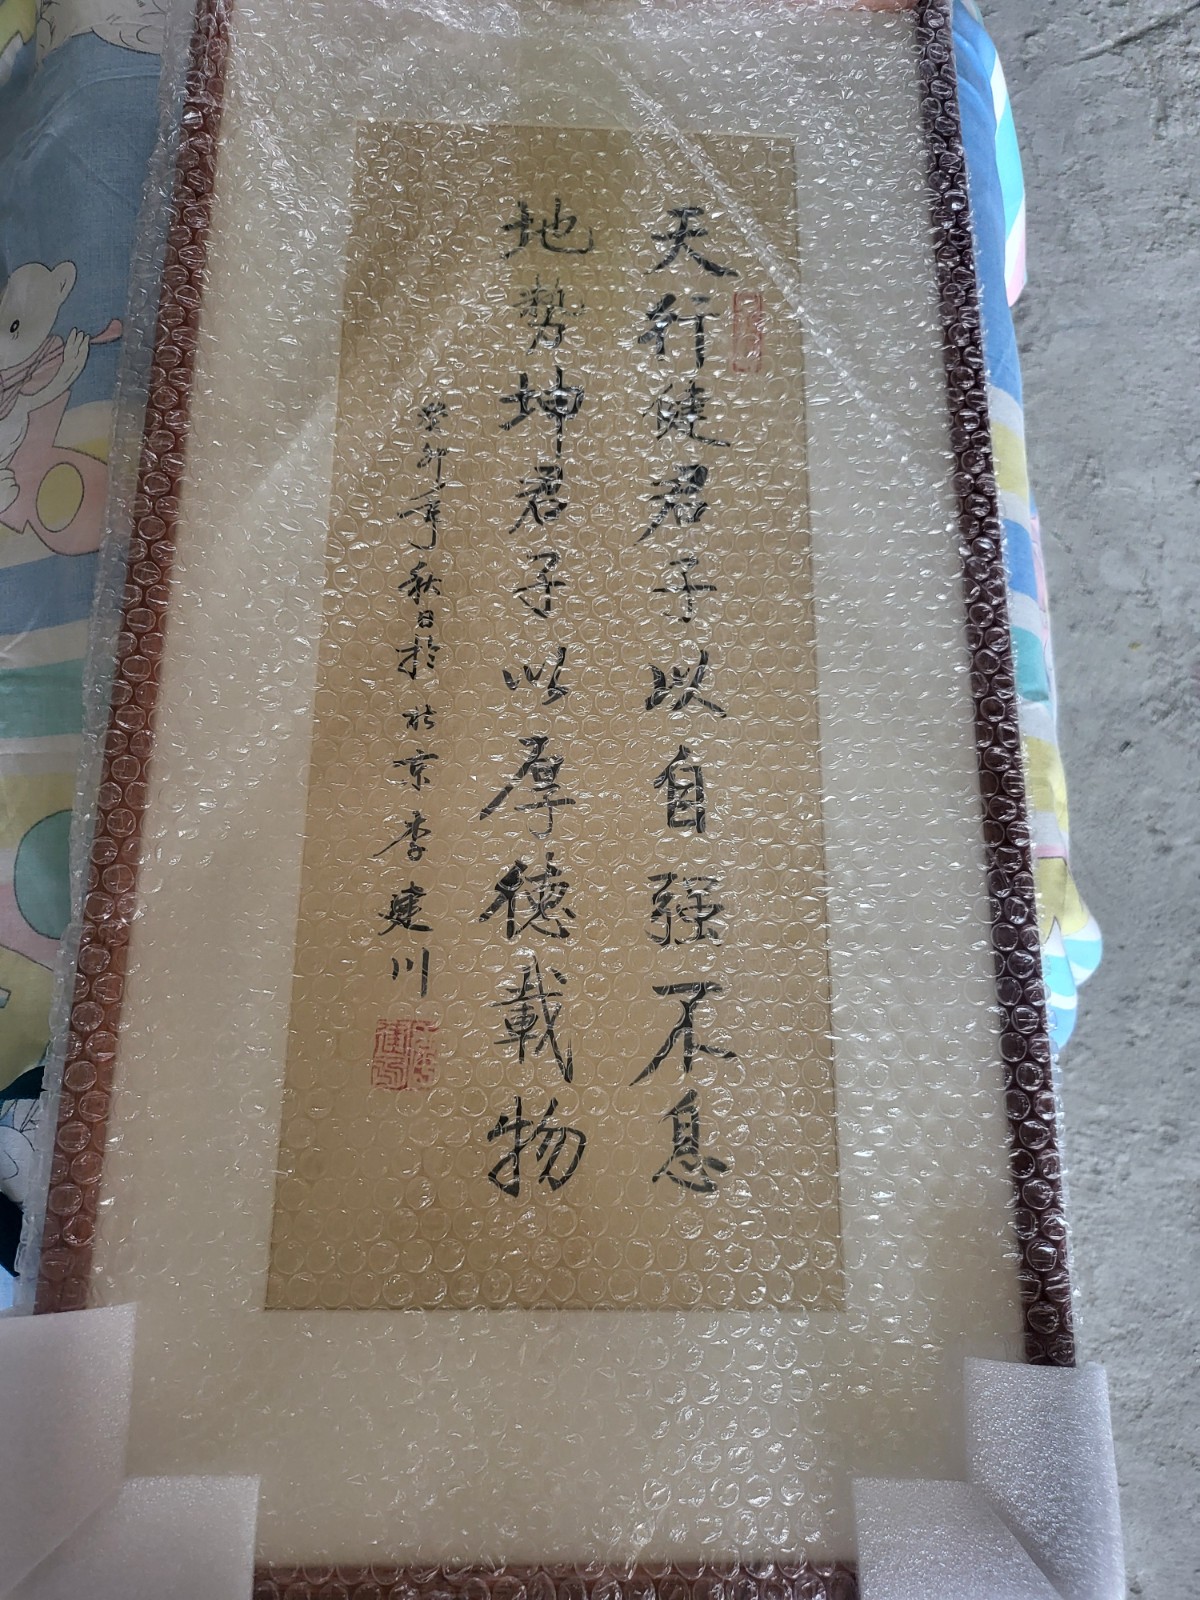 天行健君子以自强不息
地势坤君子以厚德载物
癸卯年秋日於
京李建川